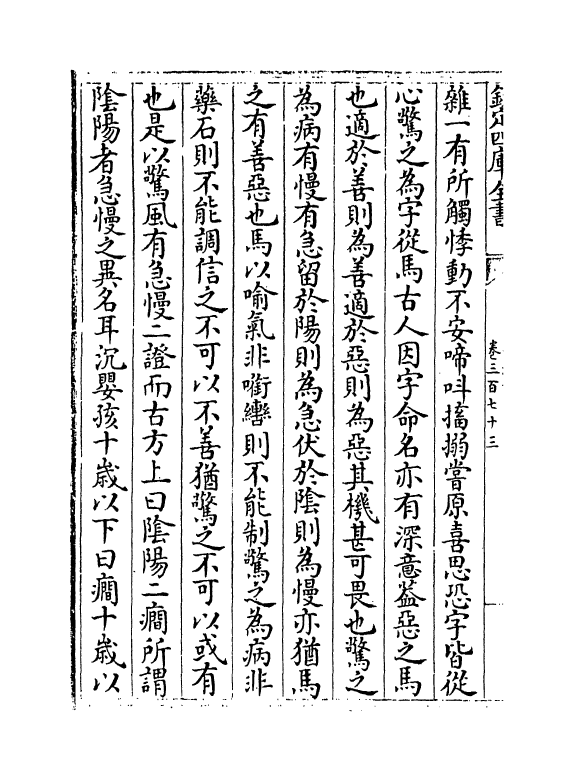 欽定四庫全書
卷三百七十三
雜一有所觸悸動不安啼呌搐搦嘗原喜思恐字皆從
心驚之為字從馬古人因字命名亦有深意葢惡之馬
也適於善則為善適於惡則為惡其機甚可畏也驚之
為病有慢有急留於陽則為急伏於陰則為慢亦猶馬
之有善惡也馬以喻氣非銜轡則不能制驚之為病非
藥石則不能調信之不可以不善猶驚之不可以或有
也是以驚風有急慢二證而古方上曰陰陽二癎所謂
陰陽者急慢之異名耳沉嬰孩十歲以下曰癎十歲以